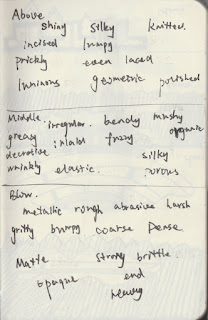 Above
shiny silky knitted.
incised lumpy
prickly even laced
luminous geometric polished
Middle. irregular. bendy mushy
greasy inlaid fuzzy organic
decorative silky
wrinkly elastic. porous
Blow.
metallic rough abrasive harsh
gritty bumpy coarse Dense
Matte strong brittle.
opaque end